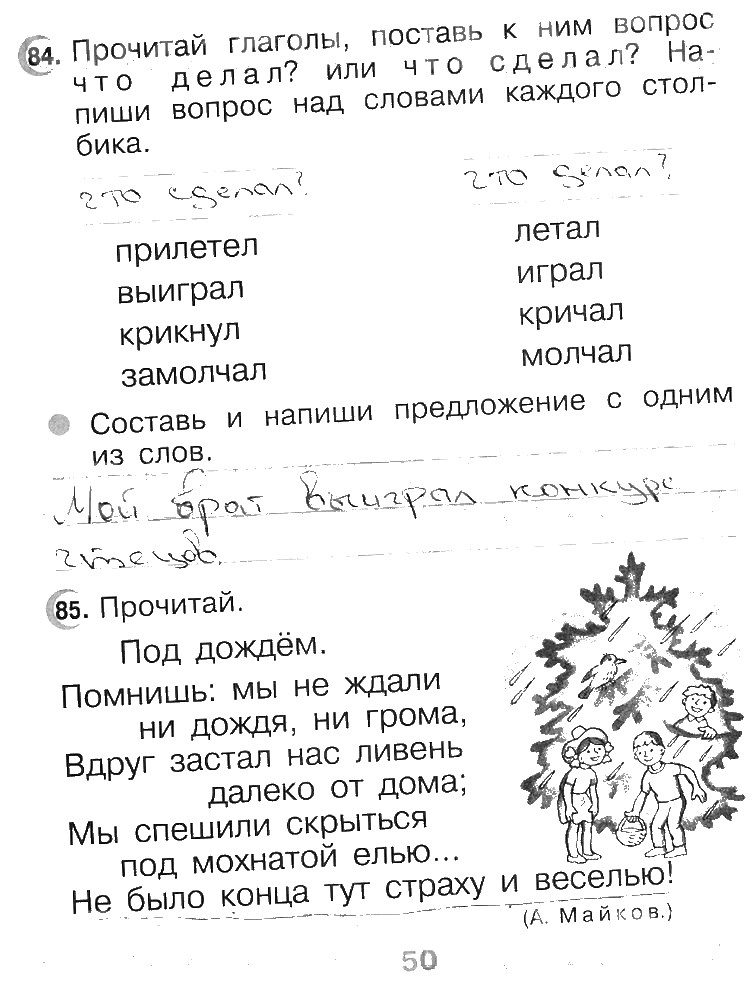 84. Прочитай глаголы, поставь к ним вопрос
что делал? или что сделал? На-
пиши вопрос над словами каждого стол-
бика.
что сделал?
что делал?
прилетел
летал
выиграл
играл
крикнул
кричал
замолчал
молчал
Составь и напиши предложение с одним
из слов.
Мой брат выиграл конкурс
чтецов.
85. Прочитай.
Под дождём.
Помнишь: мы не ждали
ни дождя, ни грома,
Вдруг застал нас ливень
далеко от дома;
Мы спешили скрыться
под мохнатой елью...
Не было конца тут страху и веселью!
(А. Майков.)
50